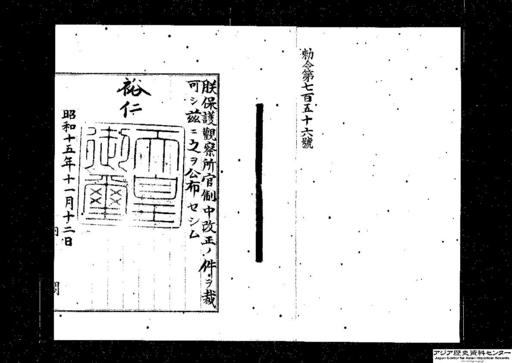 勅令第七百五十六號
朕保護觀察所官制中改正ノ件ヲ裁
可シ茲ニ之ヲ公布セシム
裕仁
天皇御璽
昭和十五年十一月十二日
アジア歴史資料センター
Japan Center for Asian Historical Records